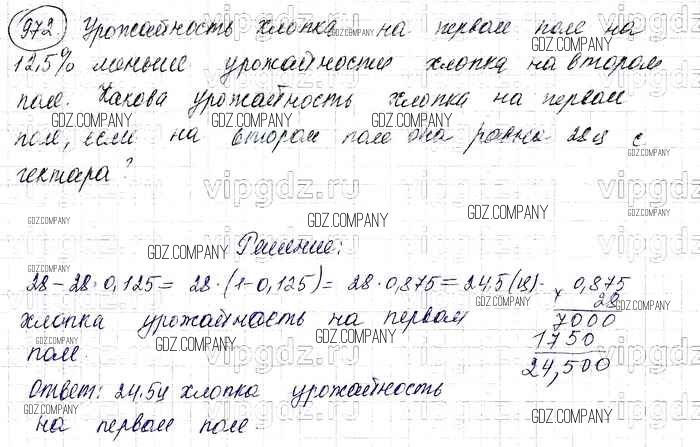 972 Урожайность хлопка на первом поле на
12,5% меньше урожайности хлопка на втором
поле. Какова урожайность хлопка на первом
поле, если на втором поле она равна 28 ц с
гектара?
Решение:
28 - 28 · 0,125 = 28 · (1-0,125) = 28 · 0,875 = 24,5 (ц) -
хлопка урожайность на первом
поле.
0,875
× 28
7000
1750
24,500
Ответ: 24,5ц хлопка урожайность
на первом поле.
vipgdz.ru
GDZ.COMPANY